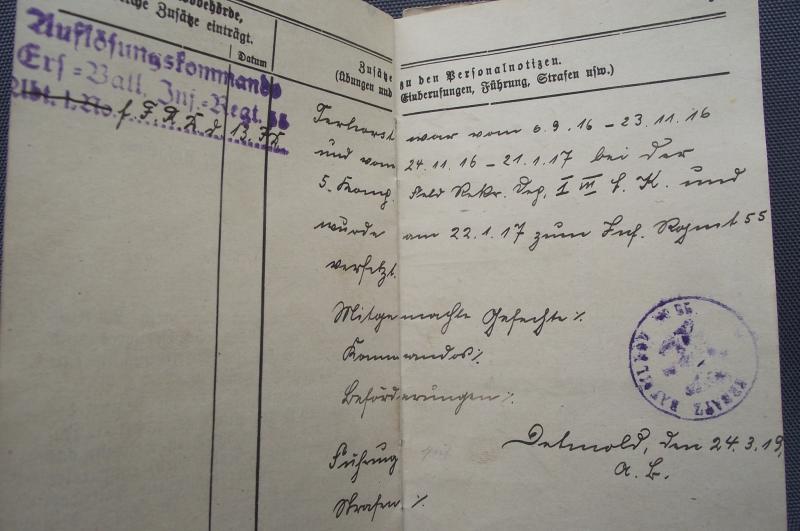 behörde,
liche Zusätze einträgt.
Datum
Auflösungskommando
Ers=Batl. Inf.=Regt. 55
Abt. 1. No.
Zusätze zu den Personalnotizen.
(Übungen und Einberufungen, Führung, Strafen usw.)
Terhorst war vom 6.9.16 – 23.11.16
und vom 24.11.16 – 21.1.17 bei der
5. Komp. Feld Rekr. Dep. I III f. K. und
wurde am 22.1.17 zum Inf. Regmt 55
versetzt.
Mitgemachte Gefechte ./.
Kommandos ./.
Beförderungen ./.
Führung gut
Strafen ./.
Detmold, den 24.3.19.
A. B.
ERSATZ BATAILLON No 55